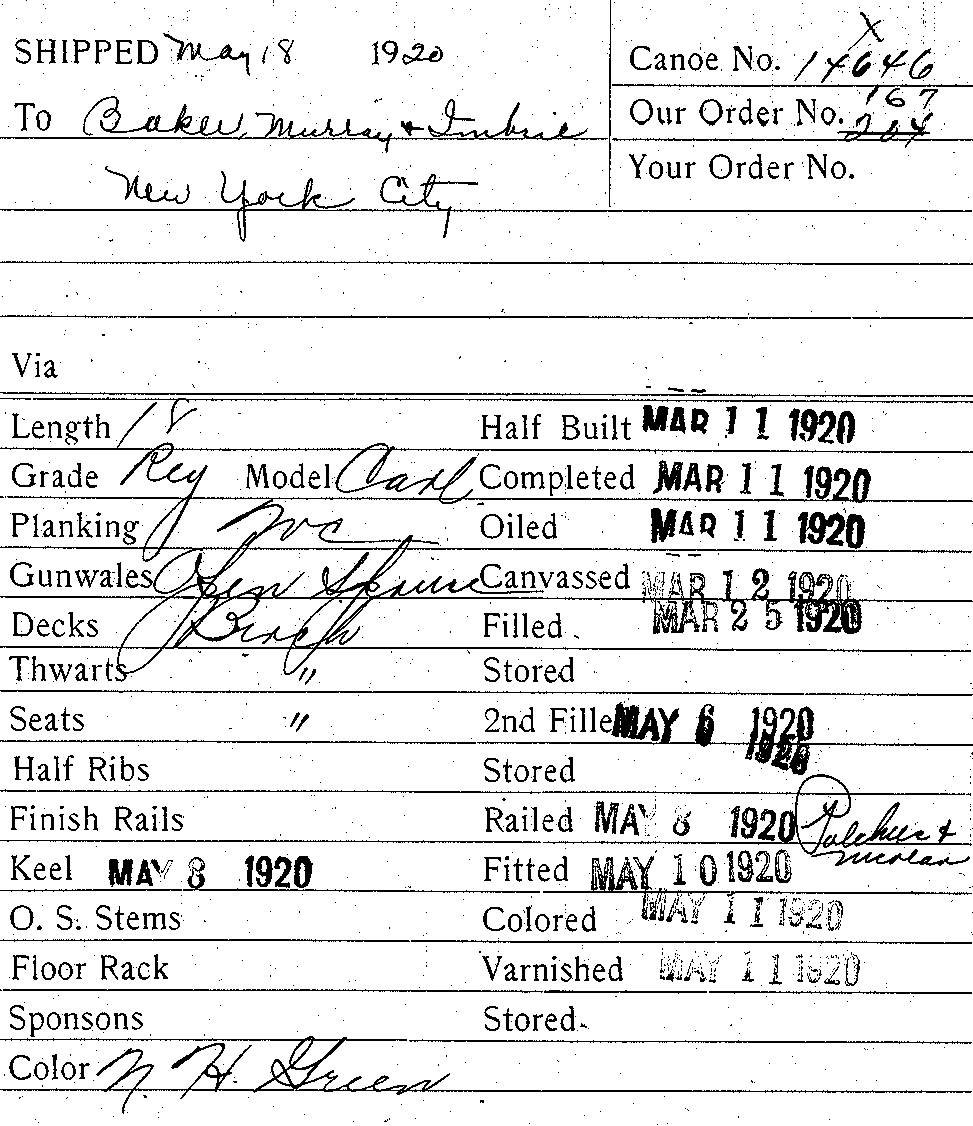 SHIPPED May 18 1920
Canoe No. 14646
X
To Baker, Murray & Imbrie
Our Order No. 167 204
New York City
Your Order No.
Via
Length 18
Half Built MAR 11 1920
Grade Reg Model Carl
Completed MAR 11 1920
Planking WC
Oiled MAR 11 1920
Gunwales Open Spruce
Canvassed MAR 12 1920
Decks Birch
Filled MAR 25 1920
Thwarts "
Stored
Seats "
2nd Fille MAY 6 1920
1920
Half Ribs
Stored
Finish Rails
Railed MAY 8 1920
Keel MAY 8 1920
Fitted MAY 10 1920
O. S. Stems
Colored MAY 11 1920
Floor Rack
Varnished MAY 11 1920
Sponsons
Stored
Color N. H. Green